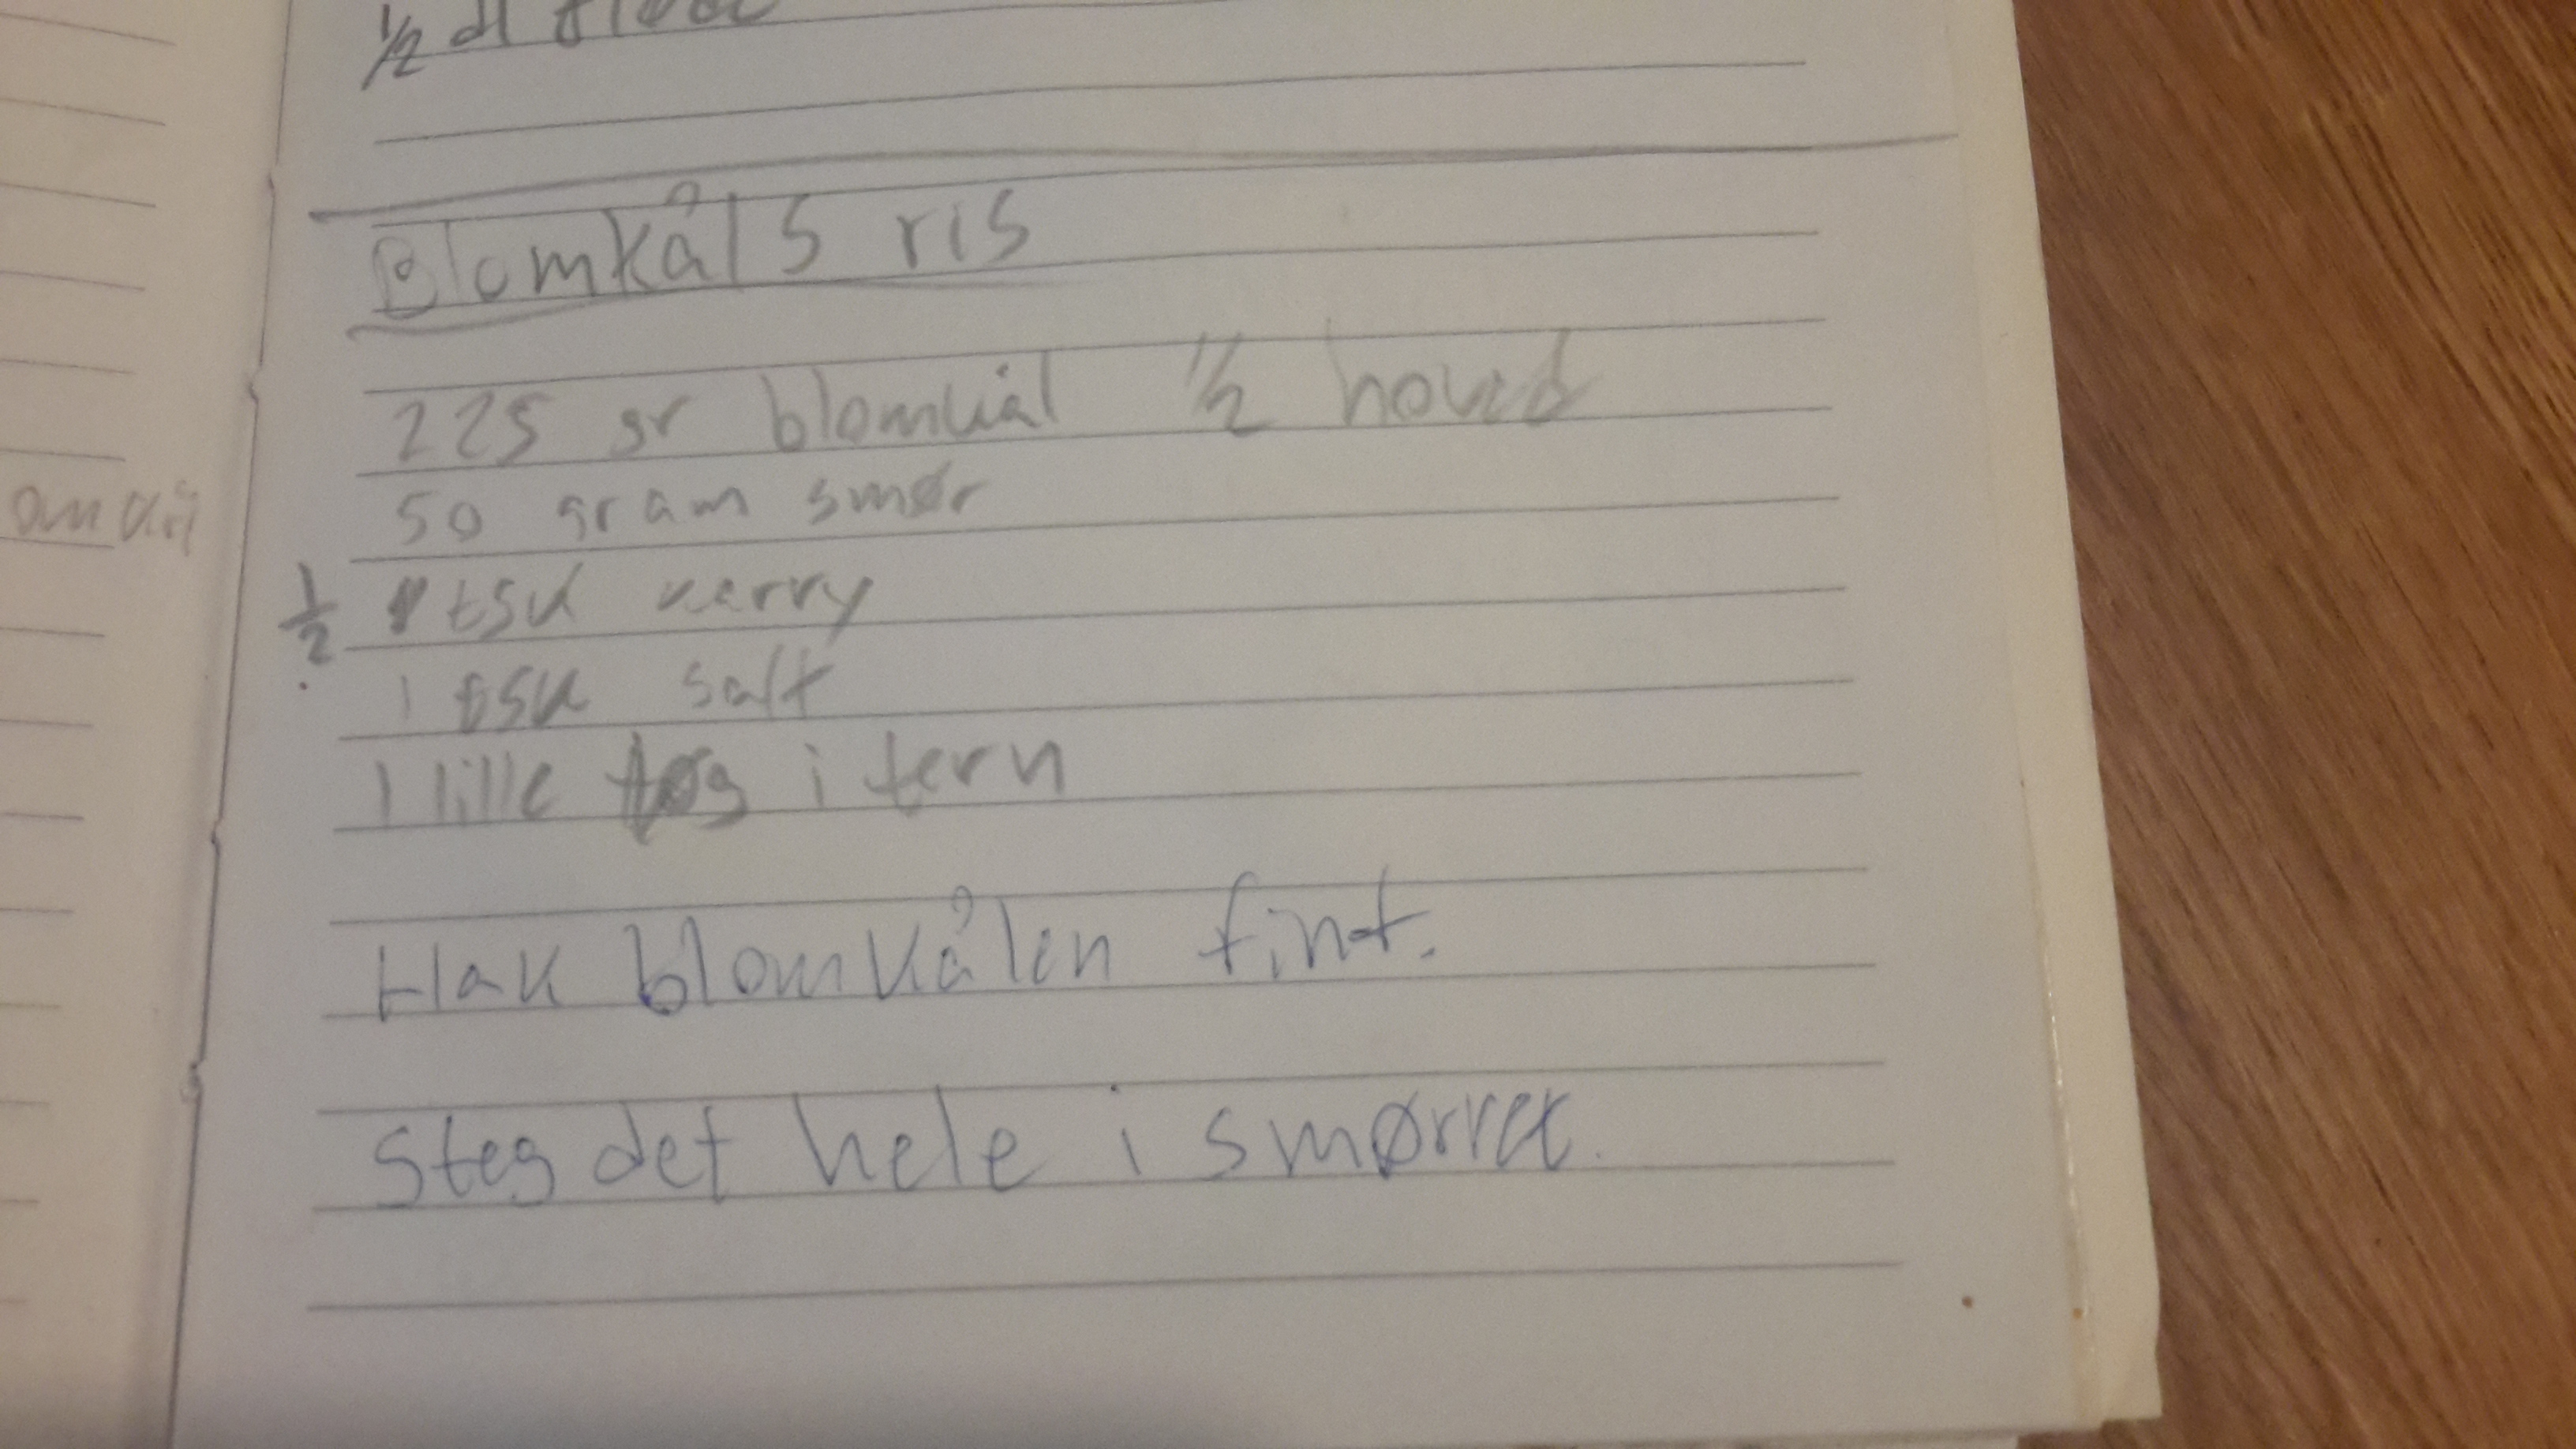 ½ dl fløde
Blomkåls ris
225 gr blomkål ½ hoved
50 gram smør
½ tsk karry
1 tsk salt
1 lille løg i tern
Hak blomkålen fint.
Steg det hele i smørret.